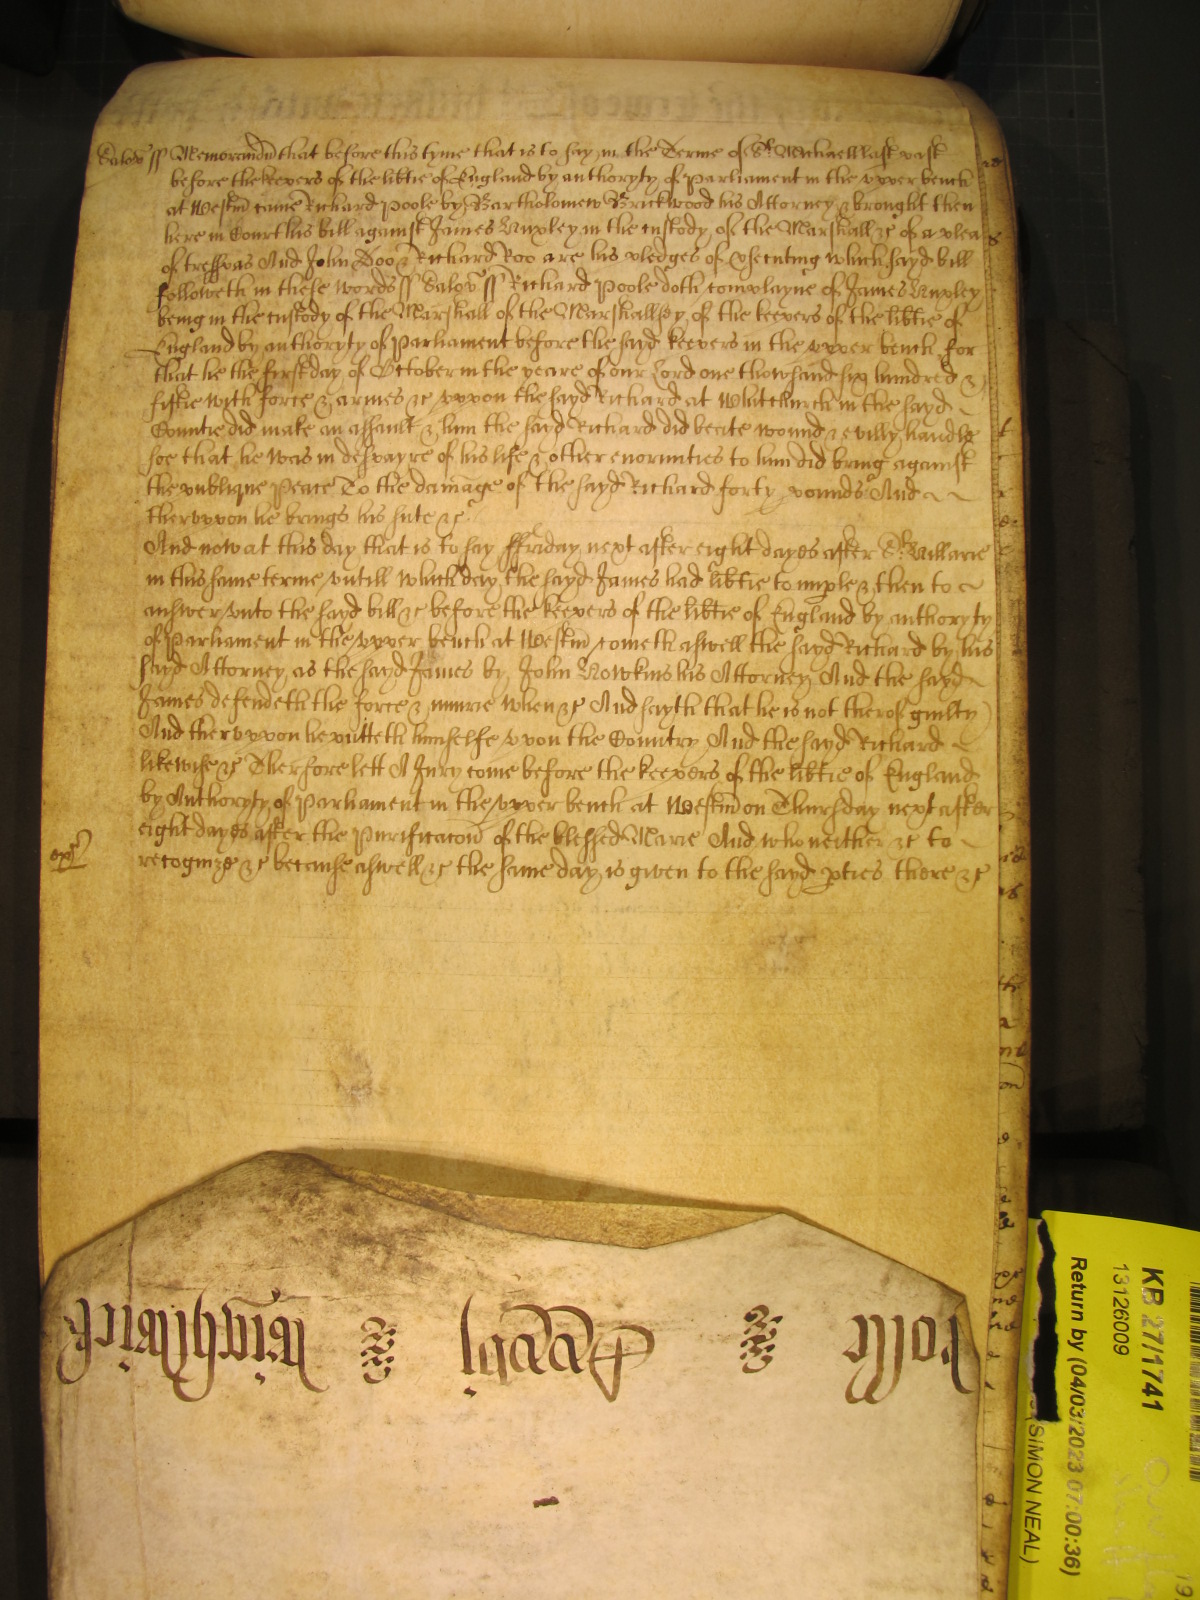 Salop ss Memorandu that before this tyme that is to say in the Terme of St Michaell last past
before the keepers of the libtie of England by authoryty of Parliament in the vpper bench
at Westm came Richard Poole by Bartholomew Brickwood his Attorney & brought then
here in Court his bill against James Huxley in the custody of the Marshall &c of a plea
of tresspas And John Doo & Richard Roo are his pledges of psecuting which sayd bill
followeth in these words ss Salop ss Richard Poole doth complayne of James Huxley
being in the custody of the Marshall of the Marshallsey of the keepers of the libtie of
England by authoryty of Parliament before the sayd keepers in the vpper bench for
that he the first day of October in the yeare of our Lord one thowsand six hundred &
fiftie with force & armes &c vppon the sayd Richard at Whitchurch in the sayd
Countie did make an assault & him the sayd Richard did beate wound & evilly handle
soe that he was in despayre of his life & other enormities to him did bring against
the publique Peace To the damage of the sayd Richard forty pounds And
thervppon he brings his sute &c
And now at this day that is to say ffriday next after eight dayes after St Hillarie
in this same terme vntill which day the sayd James had libtie to imple & then to
answer vnto the sayd bill &c before the keepers of the libtie of England by authoryty
of Parliament in the vpper bench at Westm cometh aswell the sayd Richard by his
sayd Attorney as the sayd James by John Howkins his Attorney And the sayd
James defendeth the force & iniurie when &c And sayth that he is not therof guilty
And thervppon he putteth himselfe vpon the Country And the sayd Richard
likewise &c Therfore lett A Jury come before the keepers of the libtie of England
by Authoryty of Parliament in the vpper bench at Westm on Thursday next after
eight dayes after the Purificacon of the blessed Marie And who neither &c to
recognize &c because aswell &c the same day is given to the sayd pties there &c
Rolle
KB 27/1741
13126009
Return by (04/03/2023 07:00:36)
(SIMON NEAL)